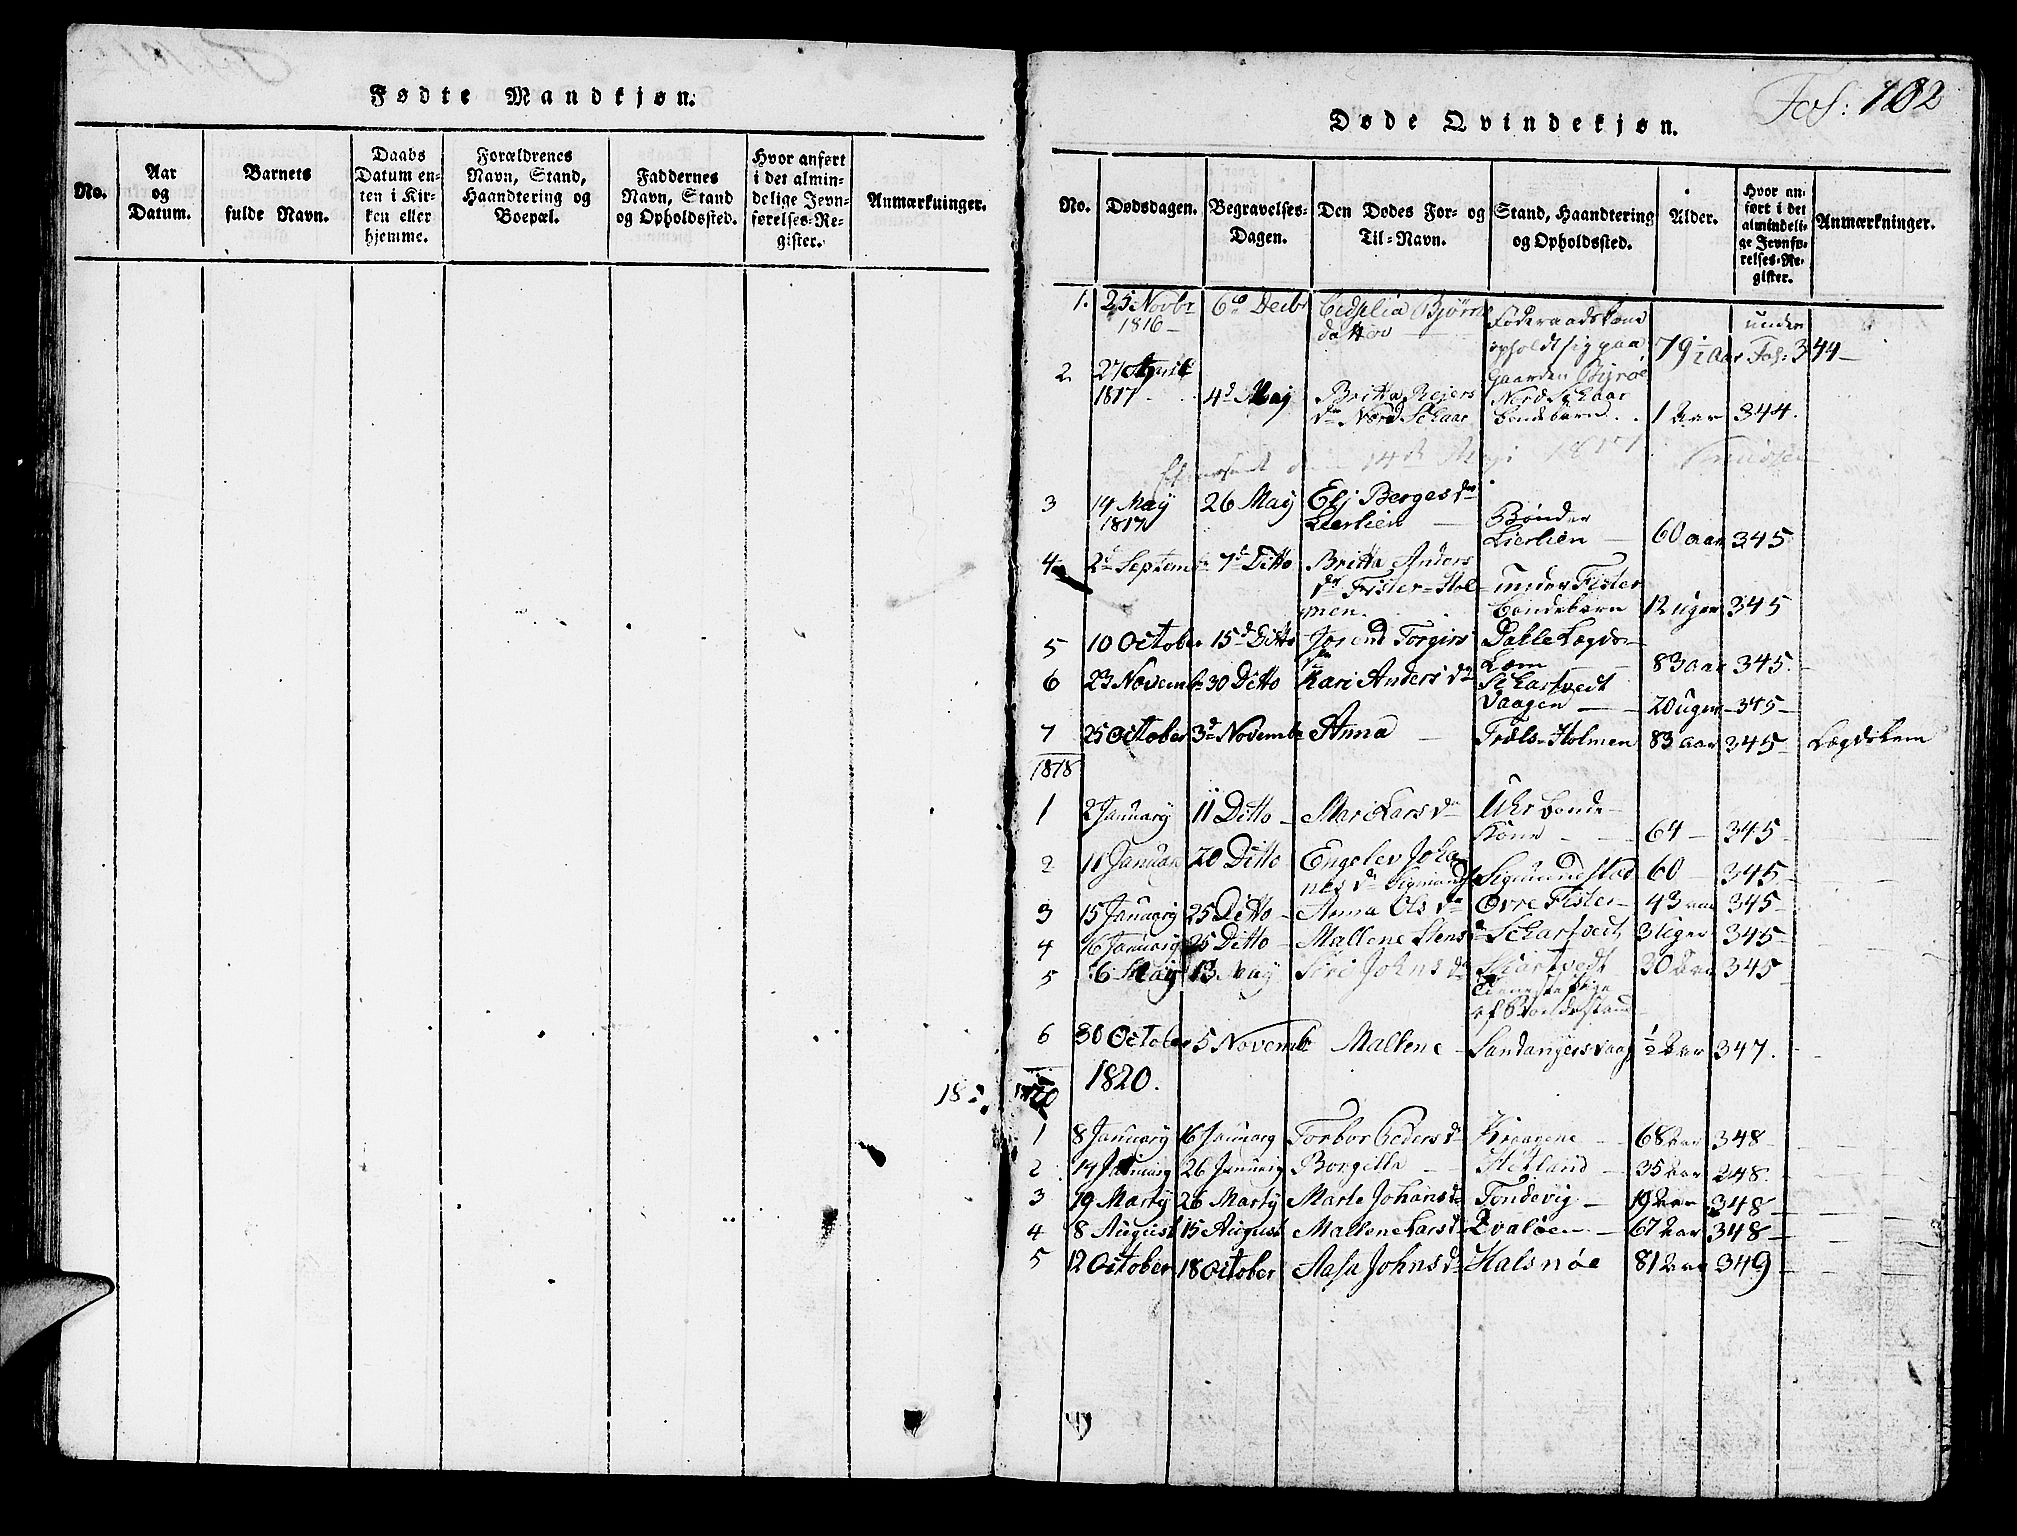 Fødte Mandkjøn.
No.
Aar
og
Datum.
Barnets
fulde Navn.
Daabs
Datum en-
ten i Kir-
ken eller
hjemme.
Forældrenes
Navn, Stand,
Haandtering og
Boepæl.
Faddernes
Navn, Stand
og Opholdssted.
Hvor anført
i det almin-
delige Jevn-
førelses-Re-
gister.
Anmærkninger.
Fol: 102
Døde Qvindekjøn.
No.
Dødsdagen.
Begravelses-
Dagen.
Den Dødes For- og
Til-Navn.
Stand, Haandtering
og Opholdssted.
Alder.
Hvor an-
ført i det
almindeli-
ge Jevnfø-
relses-Re-
gister.
Anmærkninger.
1. 25 Novbr 6 Decbr Bjørns
1816 datter
Føderaadskone
opholdt sig paa
Gaarden Byrøe
79½ Aar under Fol: 344
2 27 April
1817 4d May Britta Rejers
dr Nord Skaar
Nord Skaar
Bondebarn 1 Aar 344.
14de May 1817
3 14 May 26 May Elj Berges dr
1817 Lierlien Bønder
Lierlien 60 aar 345
4 2d Septembr 7d Ditto Britta Anders
dr Fister-Hol-
men. under Fister
Bondebarn 12 uger 345
5 10 October 15d Ditto Torgers
dr Lægds-
Lem 83 aar 345.
6 23 Novembr 30 Ditto Kari Anders dr Skartvedt
Vaagen 20 uger 345
7 25 October 3d Novembr Anna Træls-Holmen 83 aar 345 Lægdslem
1818
1 2 January 11 Ditto Mari Lars dr Uhr Bonde
Kone 64 345
2 11 Januar 20 Ditto Engelev Joha
nes dr Sigmunds Sigmundstad 60 345
3 15 January 25 Ditto Anna Ols dr Øvre Fister 43 aar 345
4 16 January 25 Ditto Mallene Stens dr Skartvedt 3 Uger 345
5 6 May 13 May Siri Johns dr Skartvedt 30 Aar 345
Tieneste Pige
af Bondestand
6 30 October 5 Novembr Mallene Sandangersvaag ½ Aar 347.
1820.
1 8 January 16 January Torbor Peders dr 68 Aar 348
2 14 January 26 January Borgilla Hetland 35 Aar 248.
3 19 Marty 26 Marty Marte Johans dr Tondevig 19 Aar 348
4 8 August 15 August Mallene Lars dr Qvaløen 67 Aar 348
5 12 October 18 October Aasa Johns dr Halsnøe 81 Aar 349